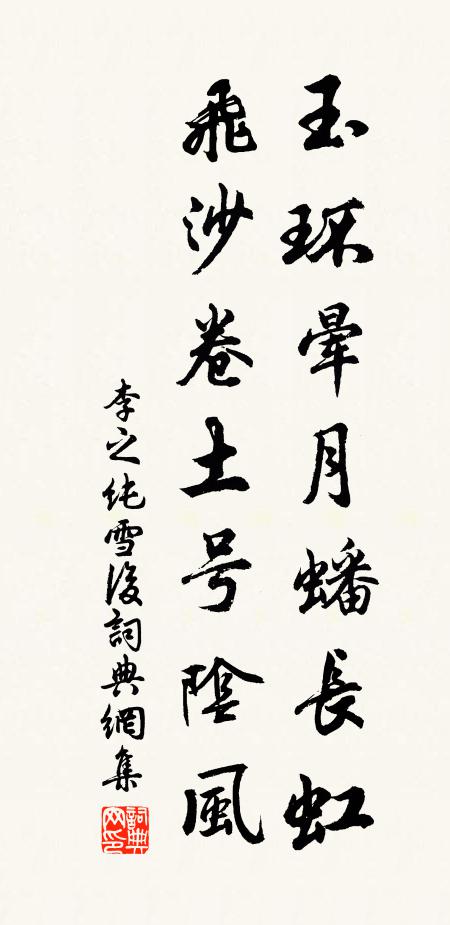 玉环晕月蟠長虹
飛沙卷土号陰風
李之純雪後詞典網集
詞典网印